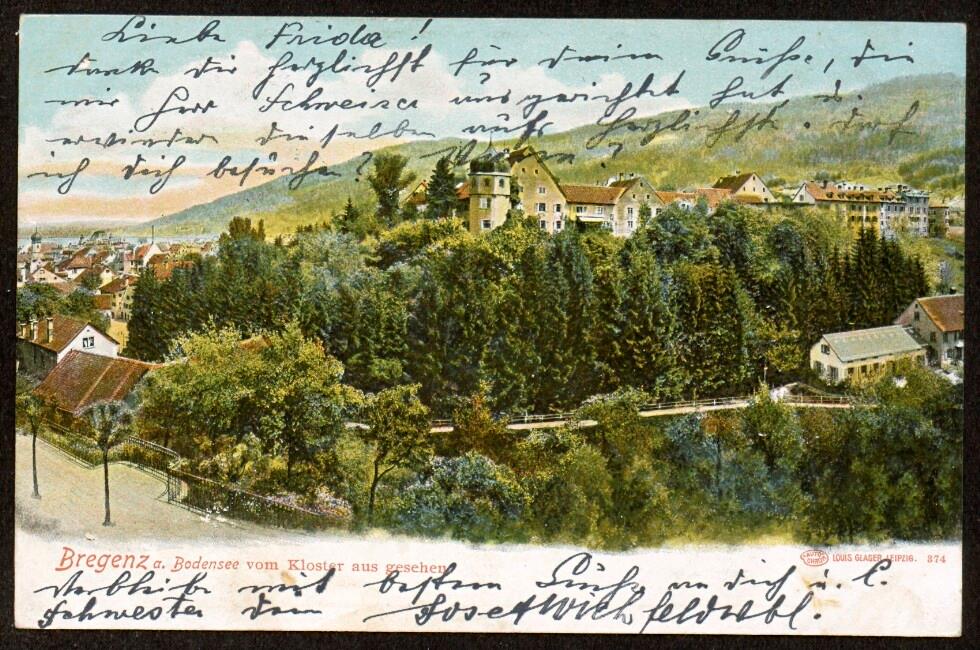 Liebe Frida!
danke dir herzlichst für deine Grüße, die
mir Herr Schweizer ausgerichtet hat u.
erwieder dieselben aufs herzlichste. darf
ich dich besuchen? Wann?
Bregenz a. Bodensee vom Kloster aus gesehen
AUTOCHROM LOUIS GLASER, LEIPZIG. 374
Verbleibe mit besten Grüße an dich u. l.
Schwester dein Josef feldwbl.